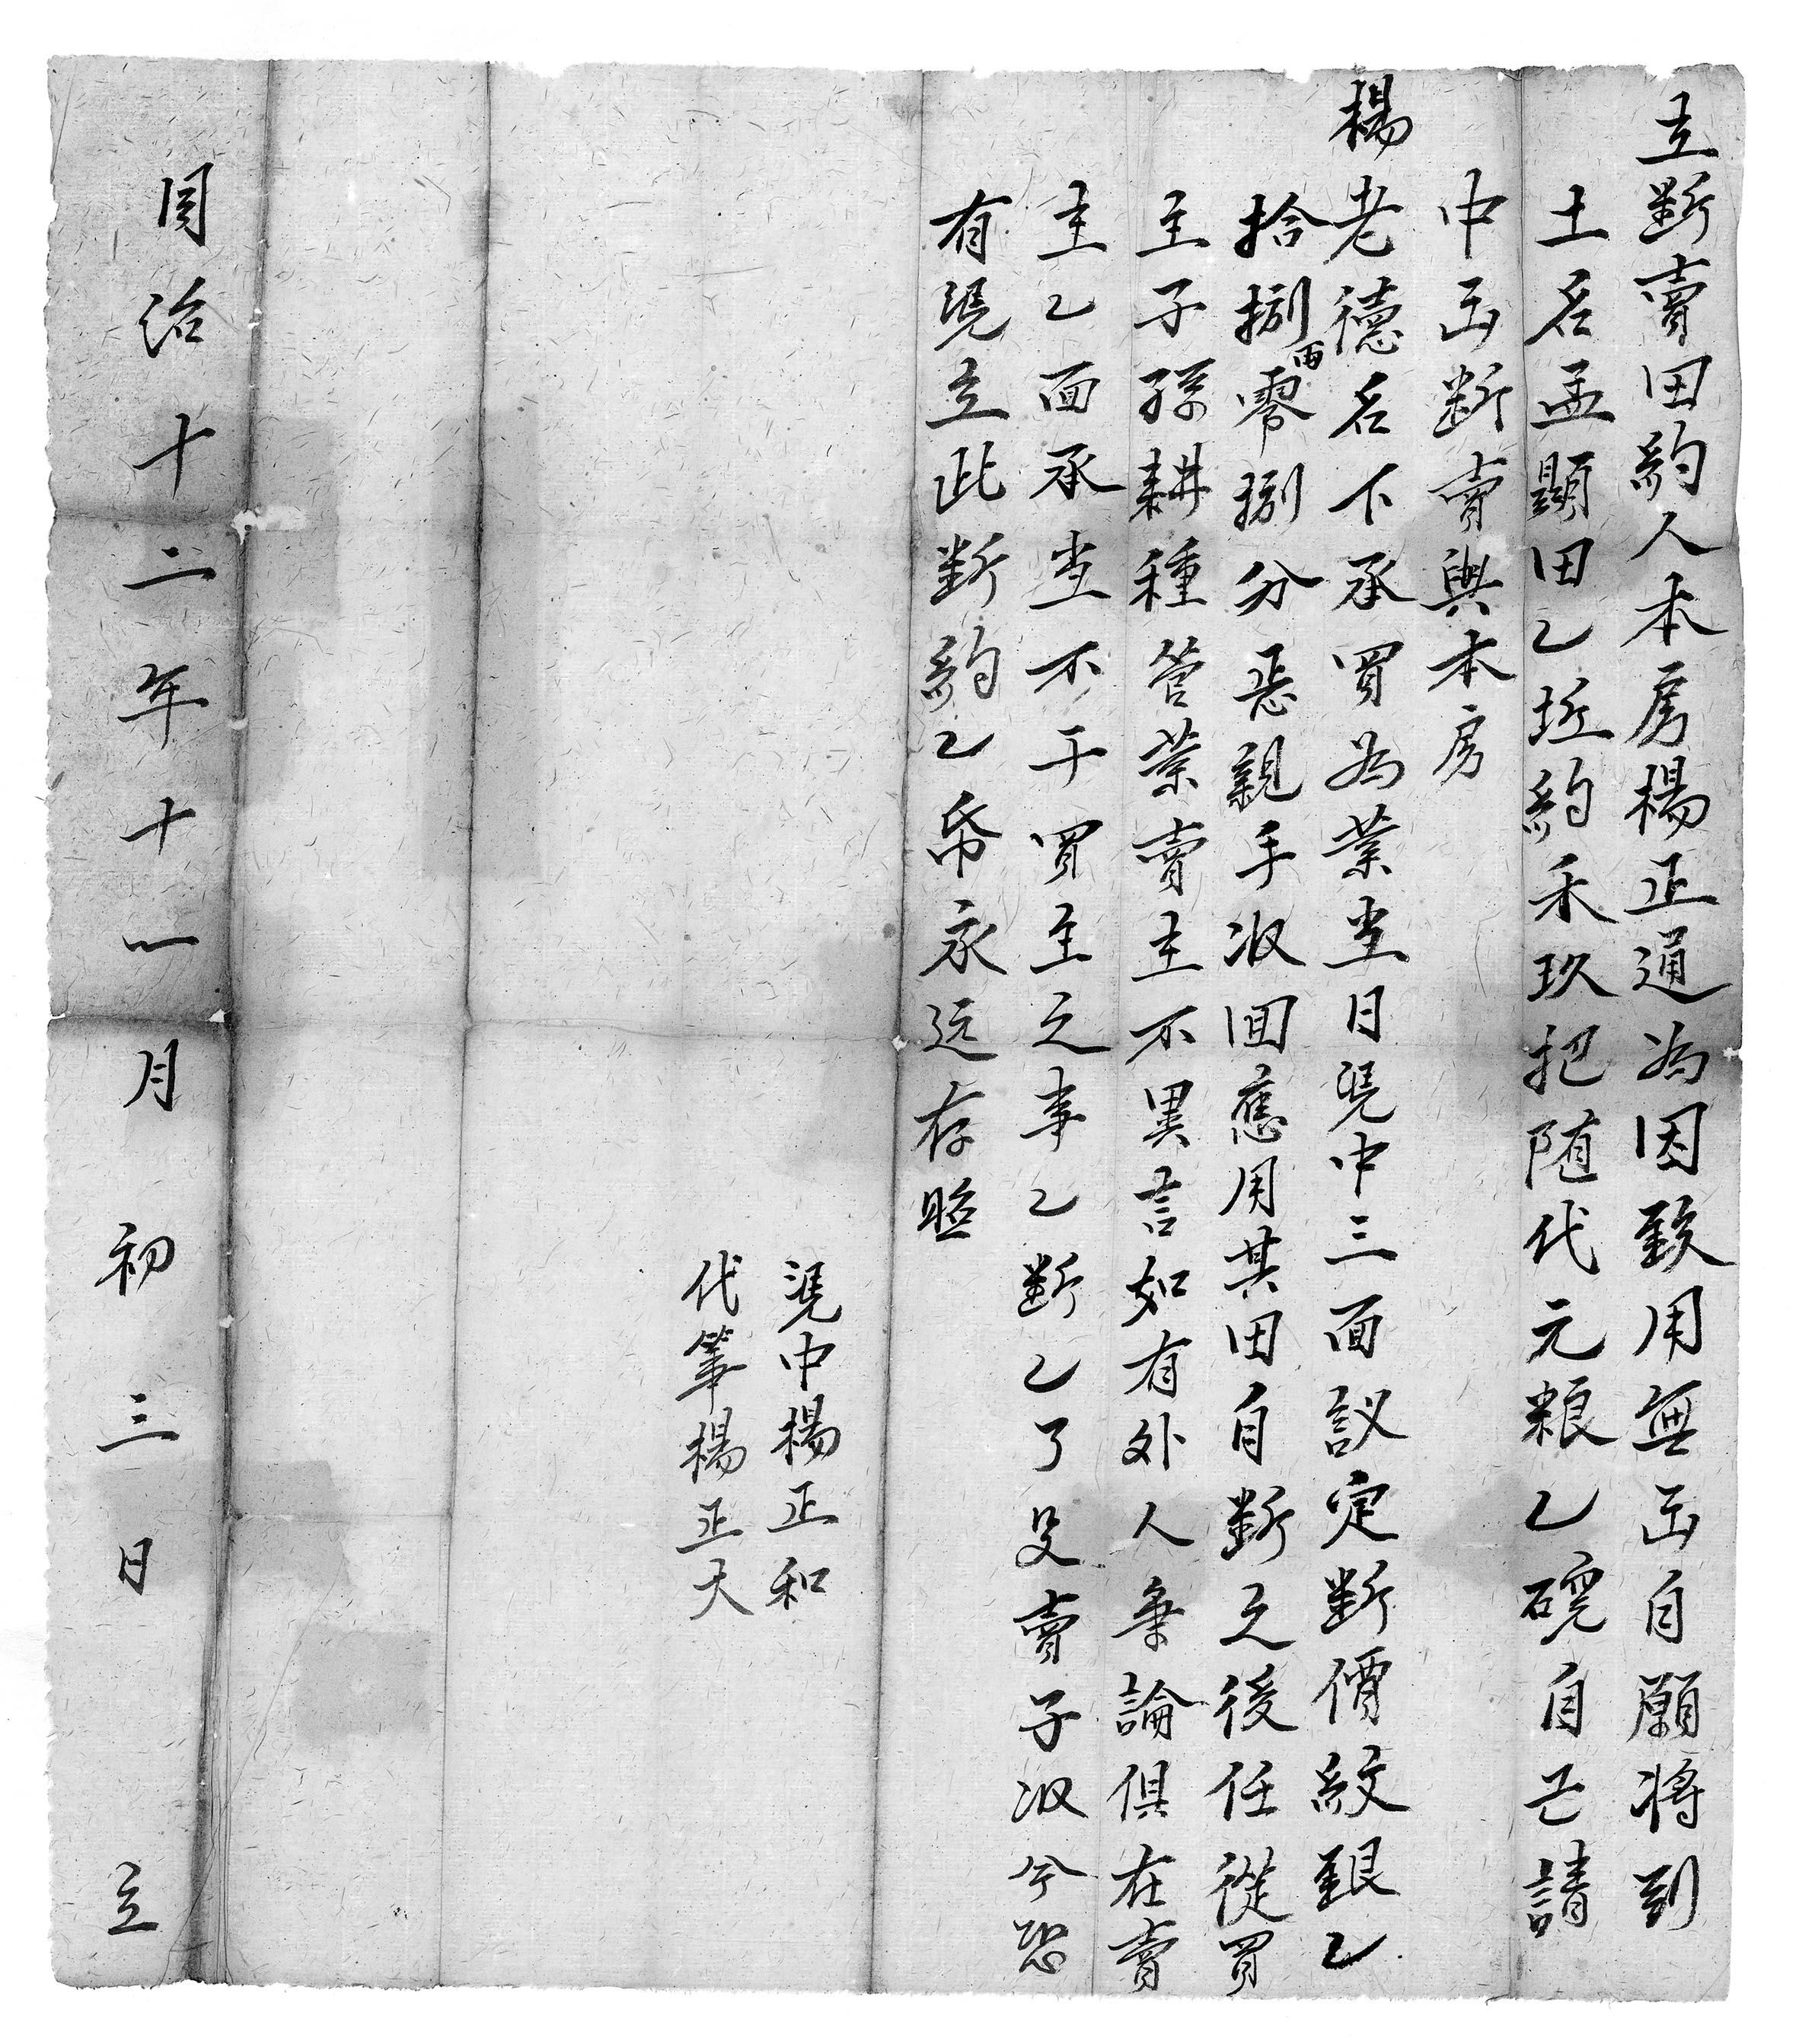 立斷賣田約人本房楊正通為因致用無出自願將到
土名孟顯田乙坵約禾玖把随代元粮乙碗自己請
中出斷賣與本房
楊老德名下承買為業当日凴中三面議定斷價紋銀乙
拾捌両零捌分悉親手收囬應用其田自斷之後任從買
主子孫耕種管業賣主不異言如有外人争論俱在賣
主乙面承当不干買主之事乙斷乙了父賣子收今恐
有凴立此斷約乙帋永远存照
凴中楊正和
代筆楊正大
同治十二年十一月初三日立